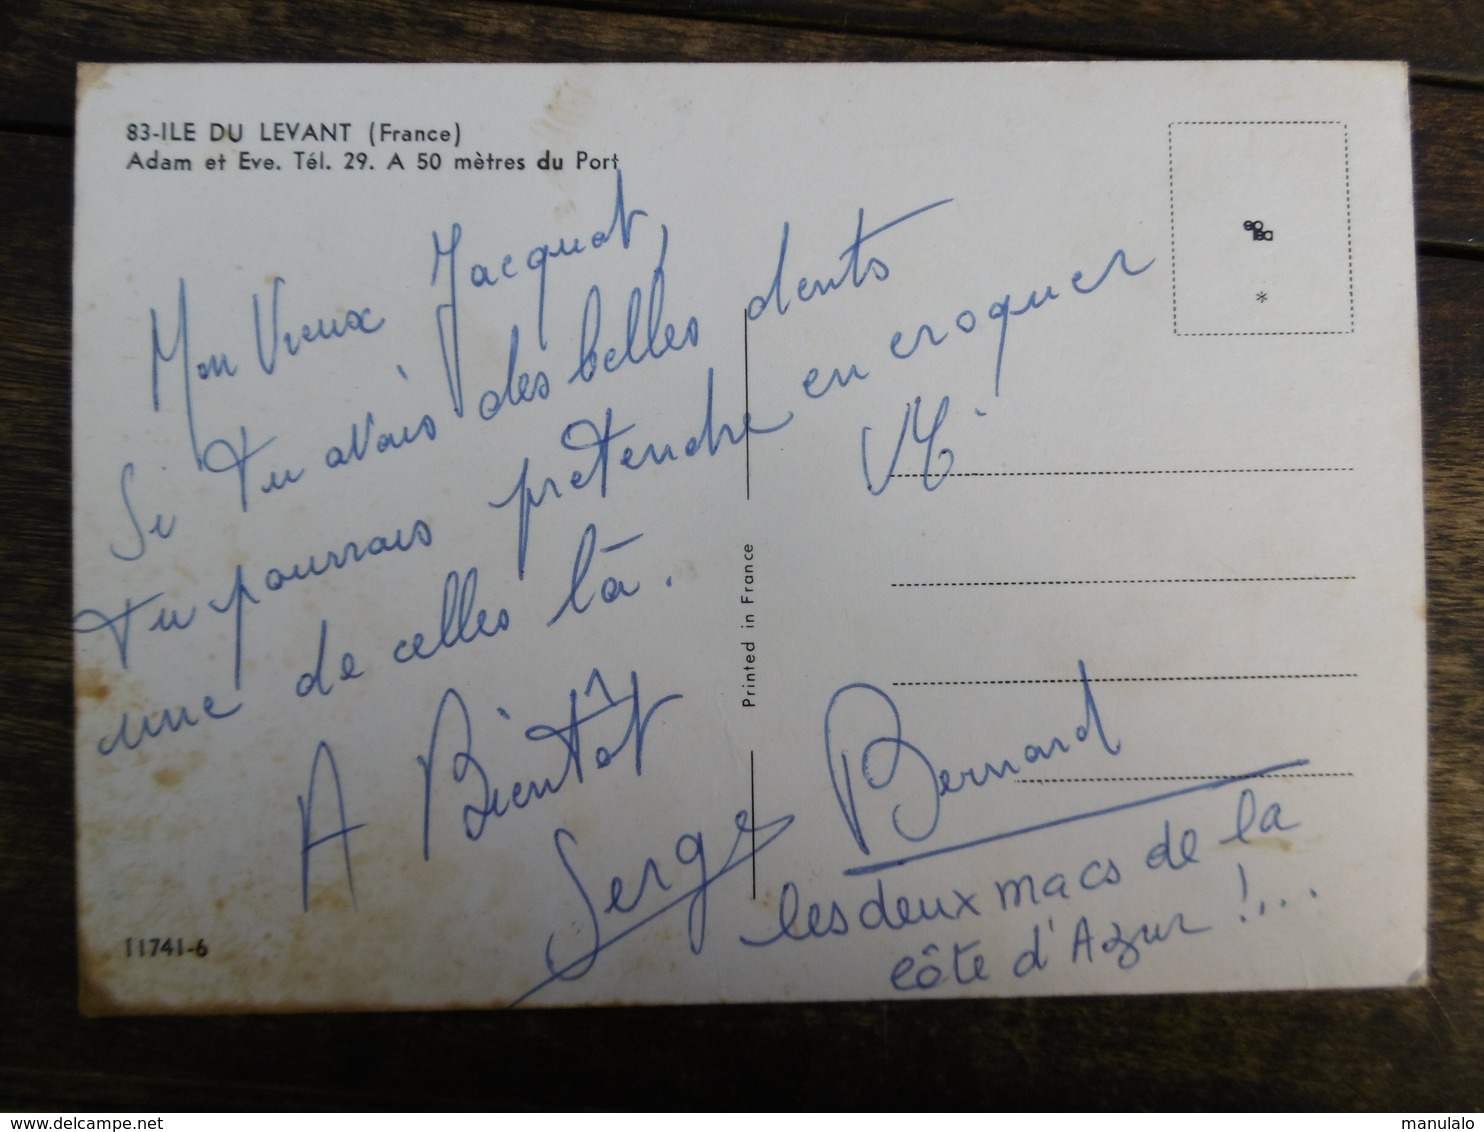 83-ILE DU LEVANT (France)
Adam et Eve. Tél. 29. A 50 mètres du Port
Mon Vieux Jacquot,
Si tu avais des belles dents
tu pourrais pretendre en croquer
une de celles là.
A Bientôt
Serge
Bernard
les deux macs de la
côte d'Azur !...
Printed in France
*
11741-6
delcampe.net
manulalo